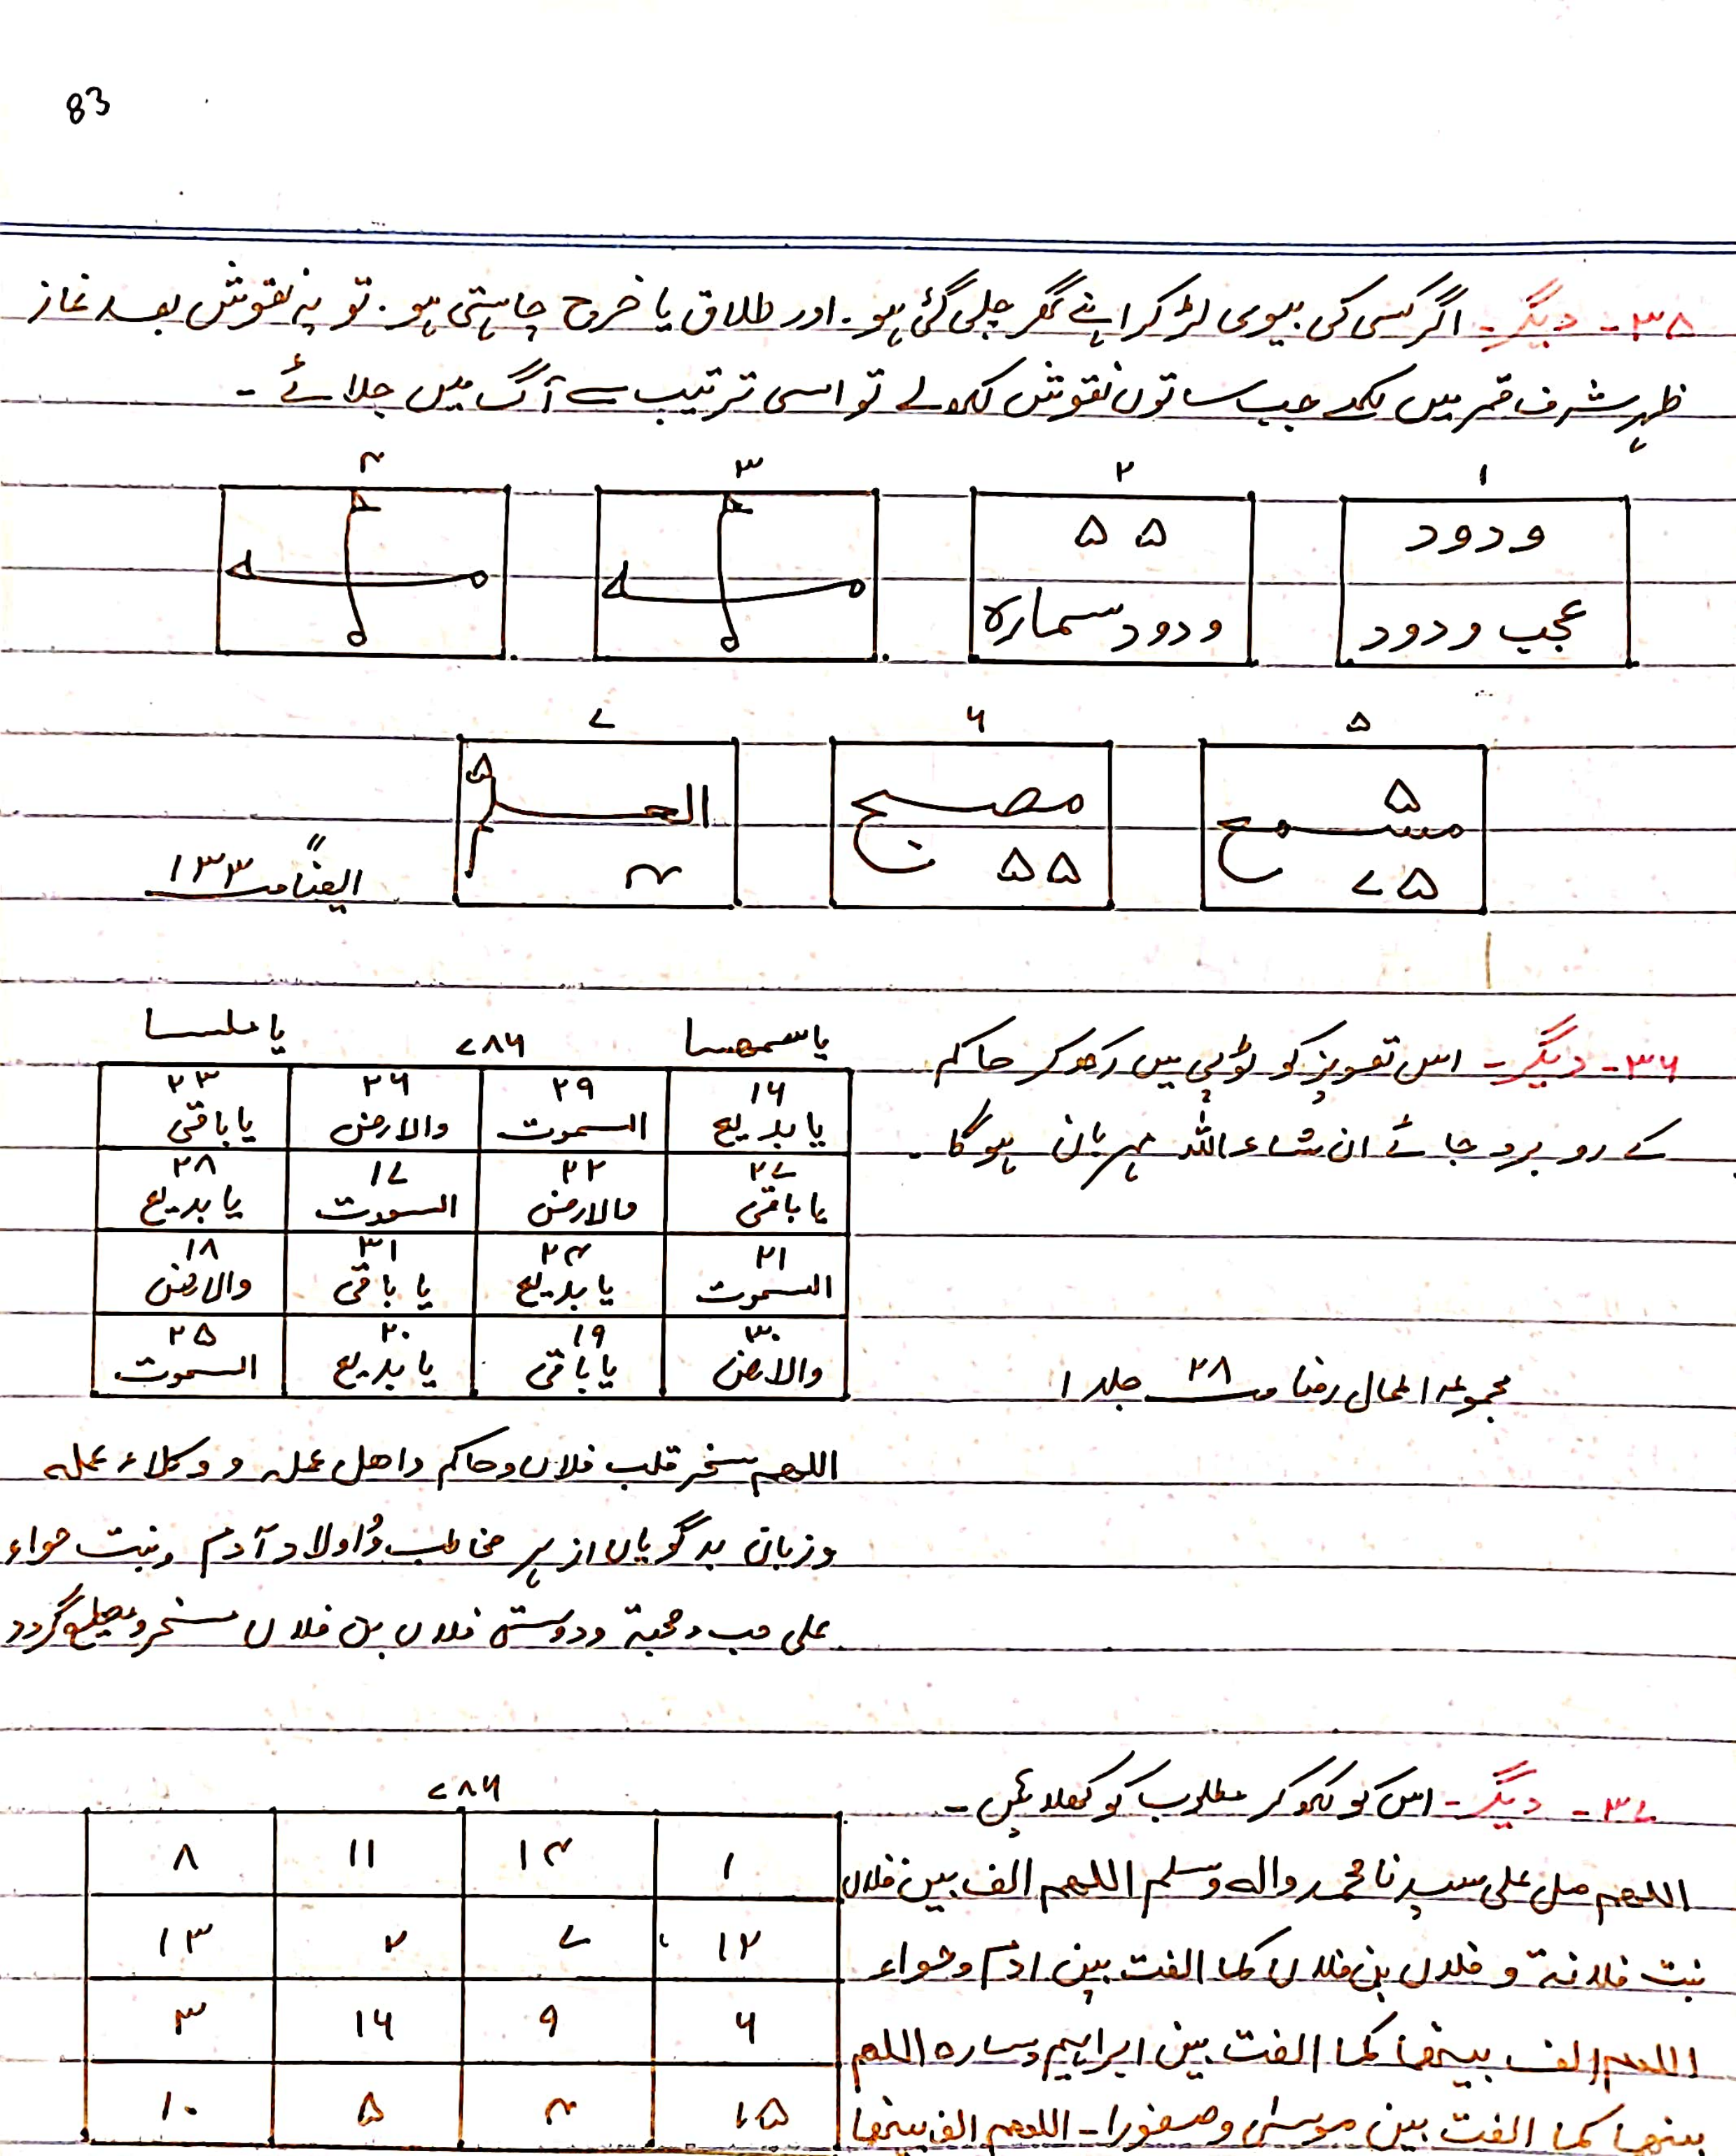 83
۳۵ - دیگر - اگر کسی کی بیوی لڑ کر اپنے گھر چلی گئی ہو. اور طلاق یا خرچ چاہتی ہو. تو یہ نقوش بعد نماز
ظہر شرف قمر میں لکھے جب ساتوں نقوش لکھ لے تو اسی ترتیب سے آگ میں جلائے -
۱ ۲ ۳ ۴
ودود
عجیب ودود
۵ ۵
ودود سمارہ
۵ ۶ ۷
۵
مسمح
۵ ۷
مصبح
۵ ۵
العـــلم
۵
۴
ایضاً ص ۱۳۳
۳۶ - دیگر - اس تعویز کو ٹوپی میں رکھ کر حاکم
کے رو برو جائے ان شاء اللہ مہربان ہوگا .
مجموعہ اعمال رضا ص ۲۸ جلد ۱
یا ۷۸۶ یا
۱۶ ۲۹ ۲۶ ۲۳
یا بدیع السموت والارض یا باقی
۲۷ ۲۲ ۱۷ ۲۸
یا باقی والارض السموت یا بدیع
۲۱ ۲۴ ۳۱ ۱۸
السموت یا بدیع یا باقی والارض
۳۰ ۱۹ ۲۰ ۲۵
والارض یا باقی یا بدیع السموت
اللهم سخر قلب فلاں وحاکم واھل عملہ و وکلاء عملہ
وزبان بدگویاں از ہر مخاطب و اولاد آدم و بنت حواء
علی حب ومحبة ودوستی فلاں بن فلاں مسخر و مطیع گردد
۳۷ - دیگر - اس کو لکھ کر مطلوب کو کھلائیں -
اللهم صل علی سیدنا محمد واله وسلم اللهم الف بین فلاں
بنت فلانة و فلاں بن فلاں کما الفت بین ادم وحواء
اللهم الف بینهما کما الفت بین ابراہیم وسارہ اللهم
بینهما کما الفت بین موسیٰ وصفورا - اللهم الف بینهما
۷۸۶
۱ ۱۴ ۱۱ ۸
۱۲ ۷ ۲ ۱۳
۶ ۹ ۱۶ ۳
۱۵ ۴ ۵ ۱۰